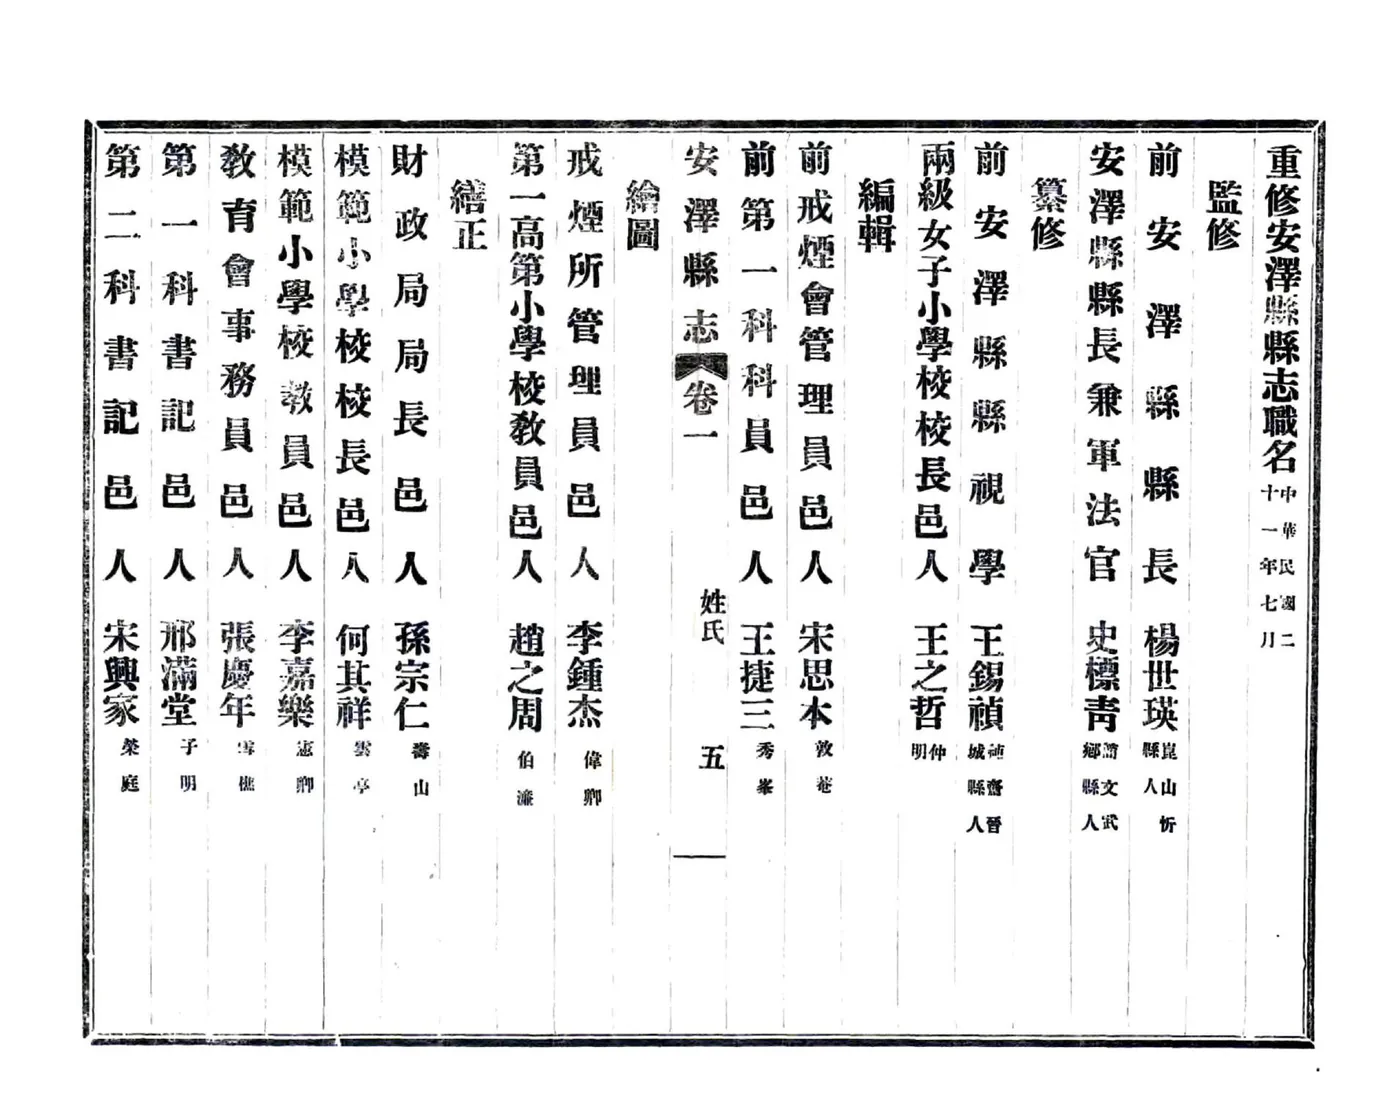 重修安澤縣縣志職名 中華民國二十一年七月
監修
前安澤縣縣長 楊世瑛 崑山忻縣人
安澤縣縣長兼軍法官 史標青 文武鄉縣人
纂修
前安澤縣縣視學 王錫禎 齋晉城縣人
兩級女子小學校校長邑人 王之哲 仲明
編輯
前戒煙會管理員邑人 宋思本 敦菴
前第一科科員邑人 王捷三 秀峯
安澤縣志 卷一 姓氏 五
繪圖
戒煙所管理員邑人 李鍾杰 偉卿
第一高第小學校教員邑人 趙之周 伯濂
繕正
財政局局長邑人 孫宗仁 壽山
模範小學校校長邑人 何其祥 雲亭
模範小學校教員邑人 李嘉樂 憲卿
教育會事務員邑人 張慶年 雪樵
第一科書記邑人 邢滿堂 子明
第二科書記邑人 宋興家 榮庭